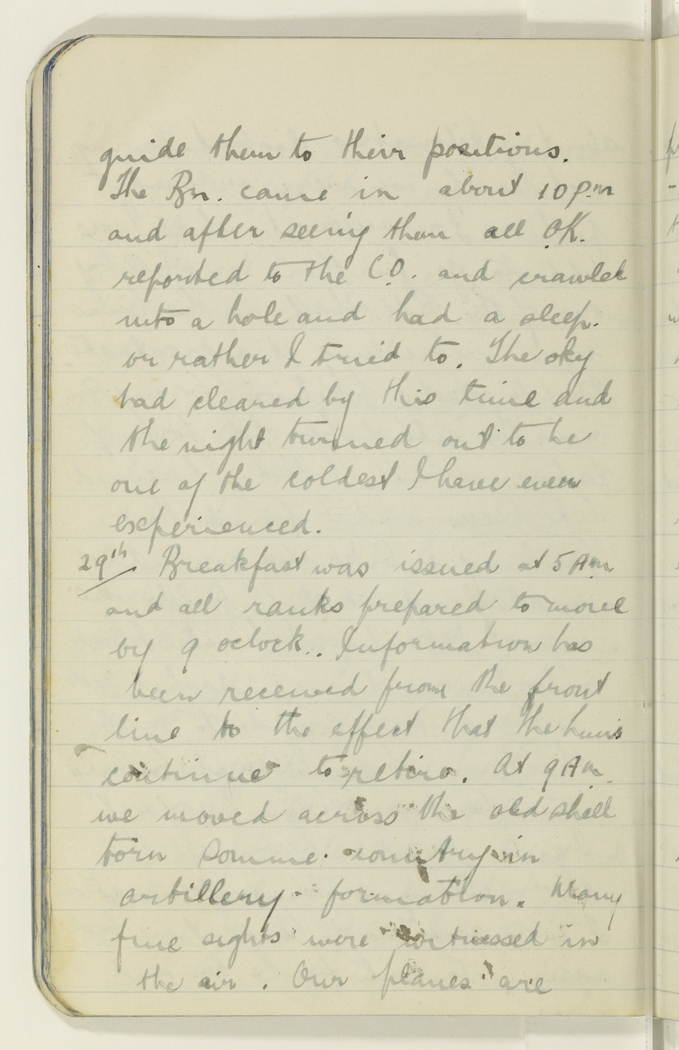 guide them to their positions.
The Bn. came in about 10 p.m
and after seeing them all OK.
reported to the C.O. and crawled
into a hole and had a sleep.
or rather I tried to. The sky
had cleared by this time and
the night turned out to be
one of the coldest I have ever
experienced.
29th Breakfast was issued at 5 Am
and all ranks prepared to move
by 9 oclock.. Information has
been received from the front
line to the effect that the huns
continue to retire. At 9 Am.
we moved across the old shell
torn Somme country in
artillery formation. Many
fine sights were witnessed in
the air. Our planes are